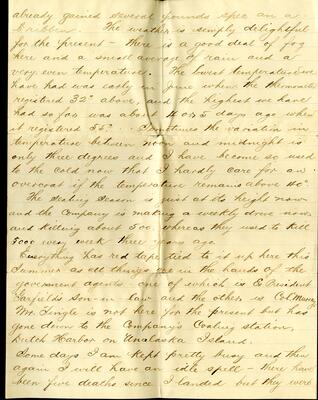 already gained several pounds since on a
The weather is simply delightful
for the present - there is a good deal of fog
here and a small average of rain and a
very even temperature. The lowest temperature we
have had was early in June when the thermometer
registered 32° above, and the highest we have
had so far was about 4 or 5 days ago when
it registered 55°. Sometimes the variation in
temperature between noon and midnight is
only three degrees and I have become so used
to the cold now that I hardly care for an
overcoat if the temperature remains above 40°
The sealing season is just at its height now
and the Company is making a weekly drive now
and killing about 500, whereas they used to kill
5000 every week three years ago.
Everything has red tape tied to it up here this
Summer as all things are in the hands of the
government agents - one of which is Ex President
Garfield's Son-in-law and the other is Col. Murray
Mr. Tingle is not here for the present but has
gone down to the Company's Coaling station,
Dutch Harbor on Unalaska Island.
Some days I am kept pretty busy and then
again I will have an idle spell - there have
been five deaths since I landed but they were